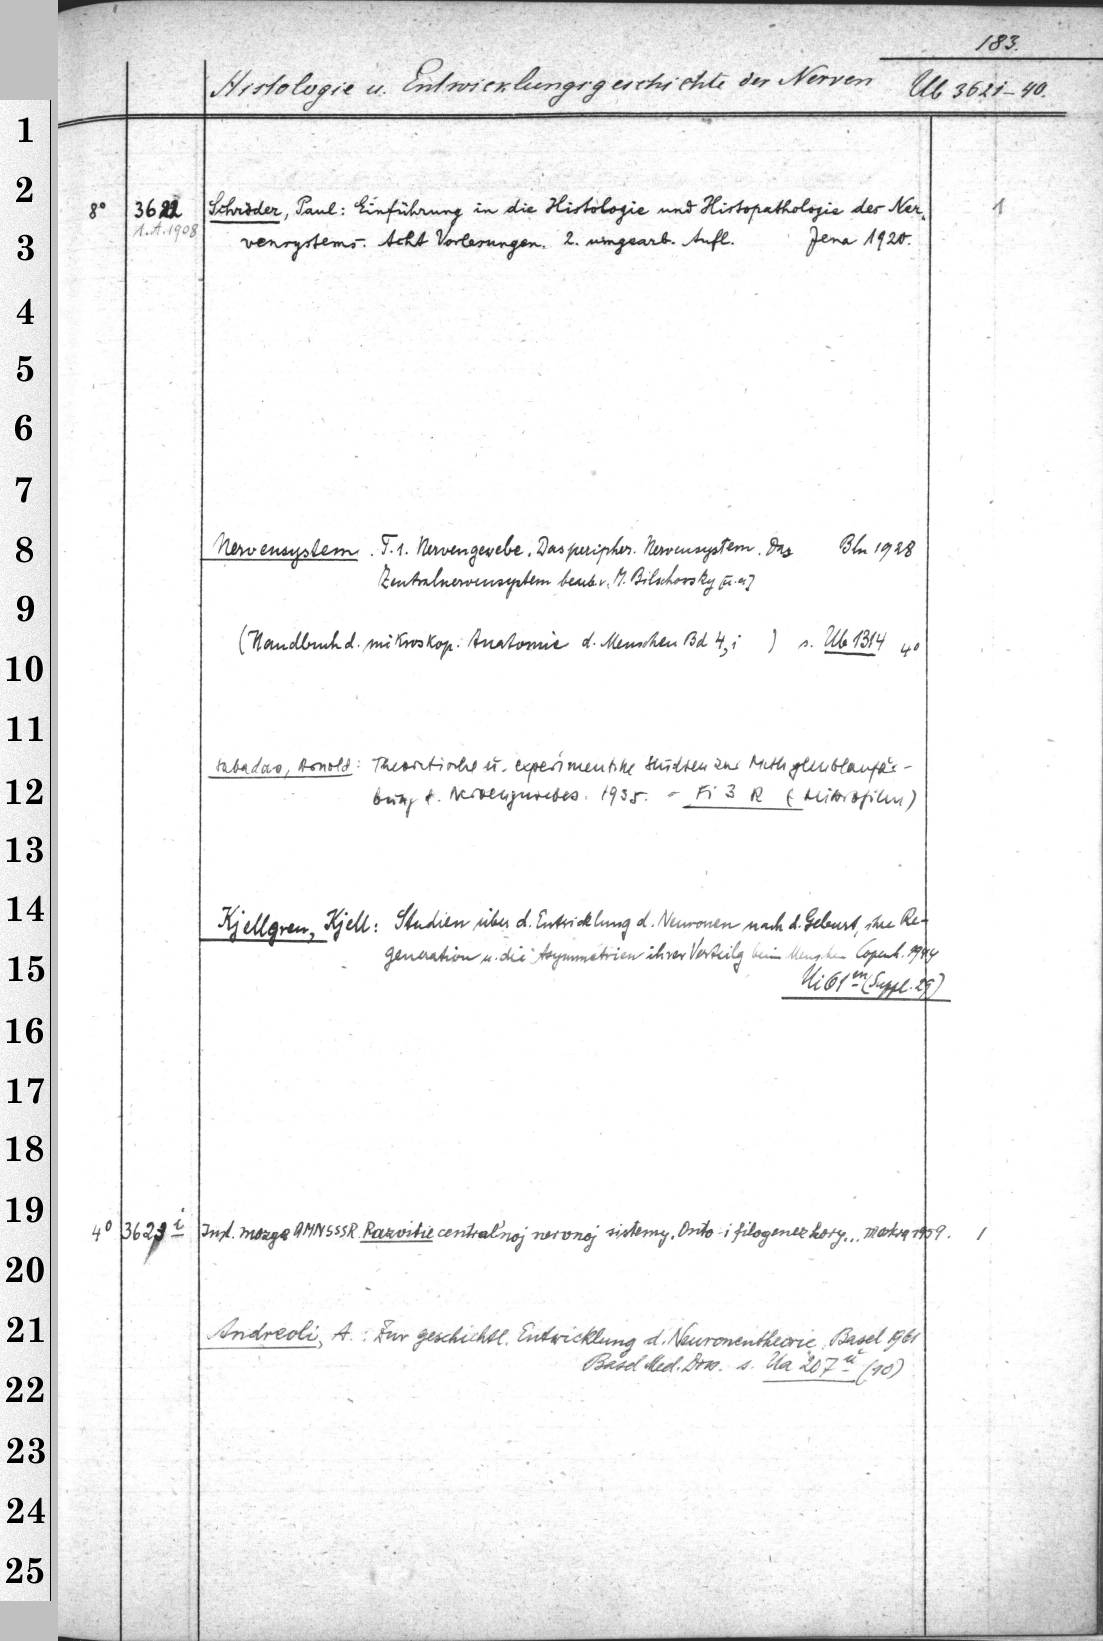 183.
Histologie u. Entwicklungsgeschichte der Nerven Ub 3621-40.
1
2
8° 3622 Schröder, Paul: Einführung in die Histologie und Histopathologie des Ner- 1
1. A. 1908
3
vensystems. Acht Vorlesungen. 2. umgearb. Aufl. Jena 1920.
4
5
6
7
8
Nervensystem. T. 1. Nervengewebe. Das peripher. Nervensystem. Das Bln 1928
Zentralnervensystem bearb. v. M. Bilschovsky [u. a]
9
(Handbuch d. mikroskop. Anatomie d. Menschen Bd 4, i ) s. Ub 1314 4°
10
11
Arnold: Theoretische u. experimentelle Studien zur Methylenblaufär-
12
bung d. Nervengewebes. 1935. - Fi 3 R (Mikrofilm)
13
14
Kjellgren, Kjell: Studien über d. Entwicklung d. Neuronen nach d. Geburt, ihre Re-
generation u. die Asymmetrien ihrer Verteilg beim Menschen Copenh. 1944
15
Ui 61 m (Suppl. 29)
16
17
18
19
4° 3623 i Inst. mozga AMN SSSR. Razvitie central'noj nervnoj sistemy. Onto- i filogenez kory... Moskva 1959. 1
20
21
Andreoli, A.: Zur geschichtl. Entwicklung d. Neuronentheorie. Basel 1961
Basel Med. Diss. s. Ua 207 ü (10)
22
23
24
25